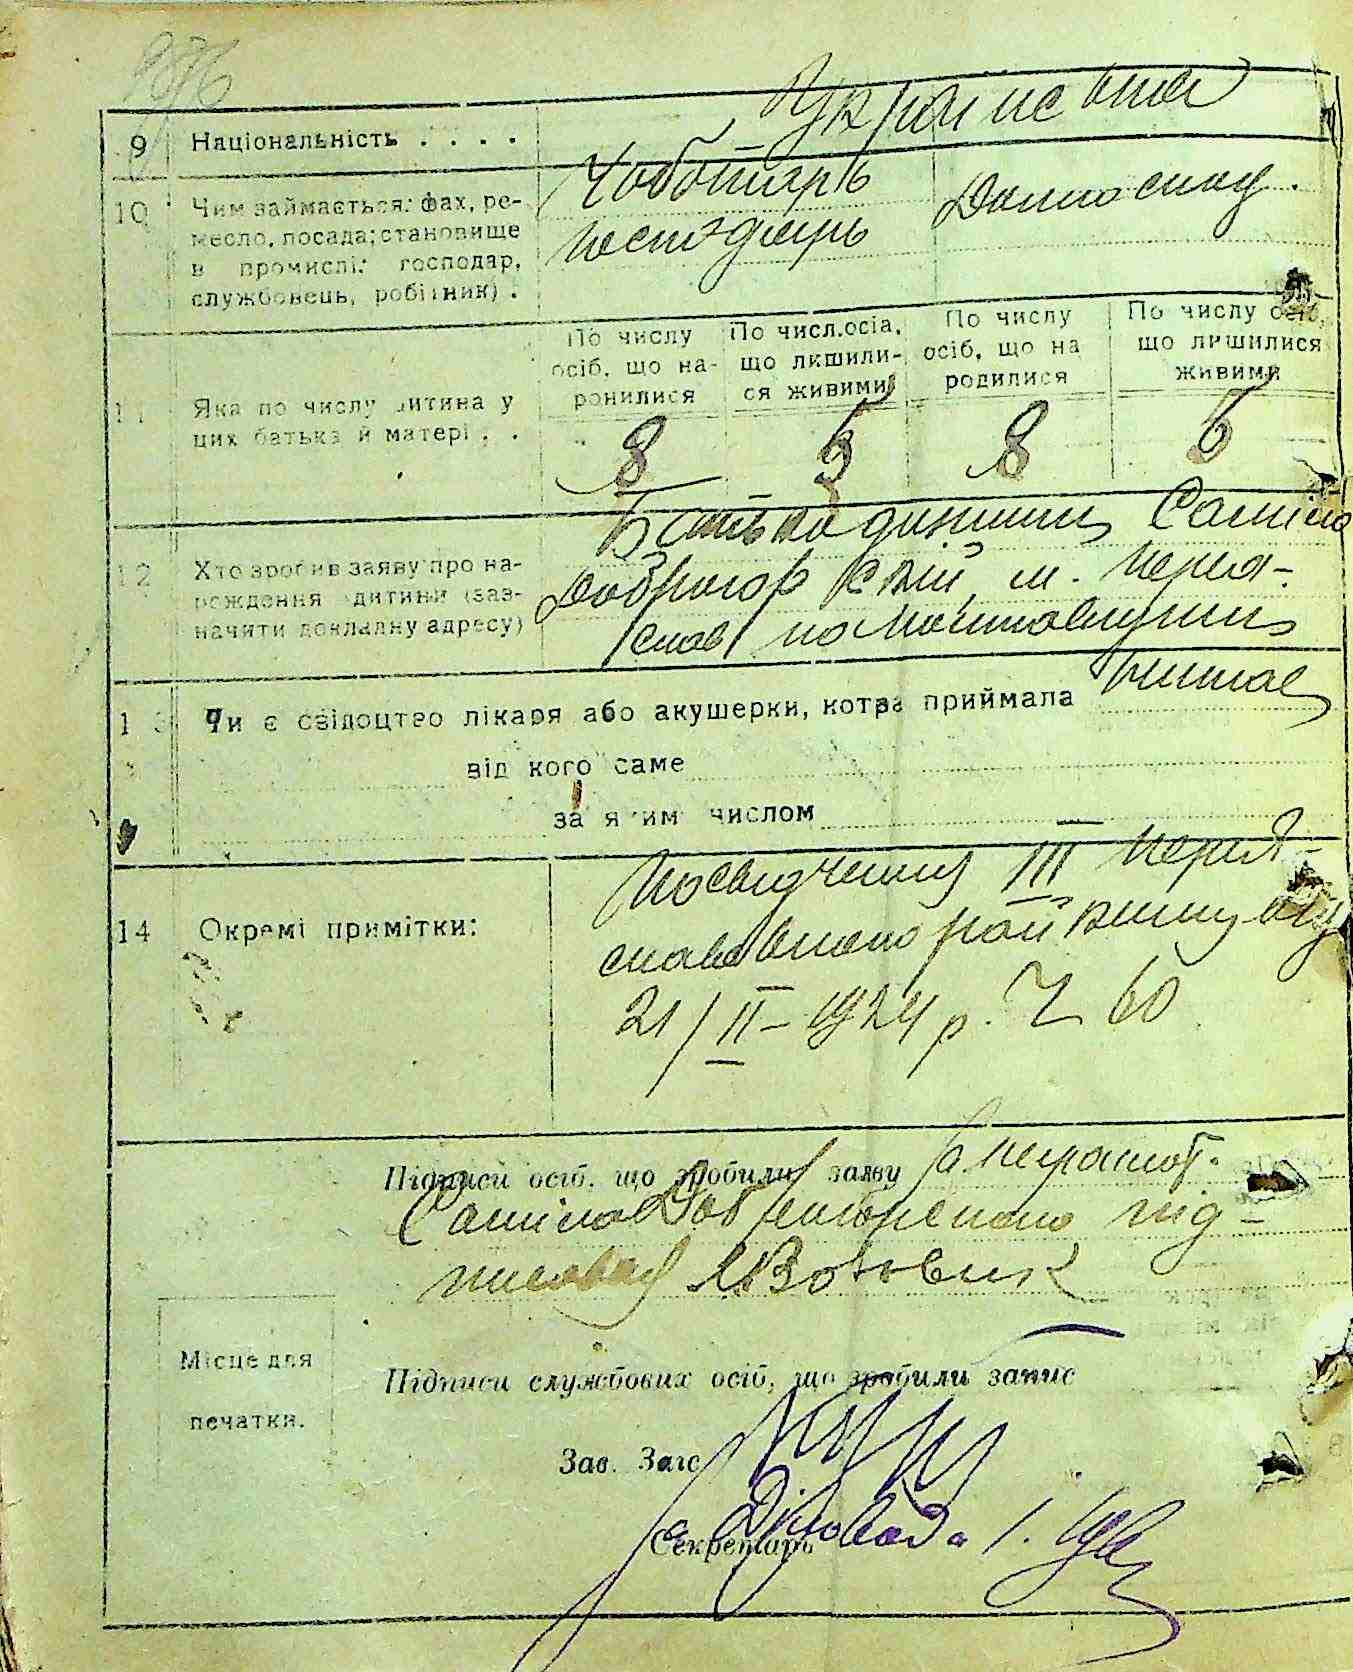 9 Національність . . . . Українська
10 Чим займається: фах, ре-
месло, посада; становище
в промислі: господар,
службовець, робітник) .
Чоботарь
господарь
Домогосп.
11 Яка по числу дитина у
цих батька й матері . .
По числу
осіб, що на-
родилися
8
По числ. осіб,
що лишили-
ся живими
5
По числу
осіб, що на
родилися
8
По числу осіб,
що лишилися
живими
12 Хто зробив заяву про на-
рождення дитини (заз-
начити докладну адресу)
Батько дитини
м. Перея-
слав
13 Чи є свідоцтво лікаря або акушерки, котра приймала немає
від кого саме
за яким числом —
14 Окремі примітки:
Посвідчення III Перея-
славського
21/II–1924 р. Ч 60
Підписи осіб, що зробили заяву а неграмотн.
під-
писався
Місце для
печатки.
Підписи службових осіб, що зробили запис
Зав. Загс
Секретарь